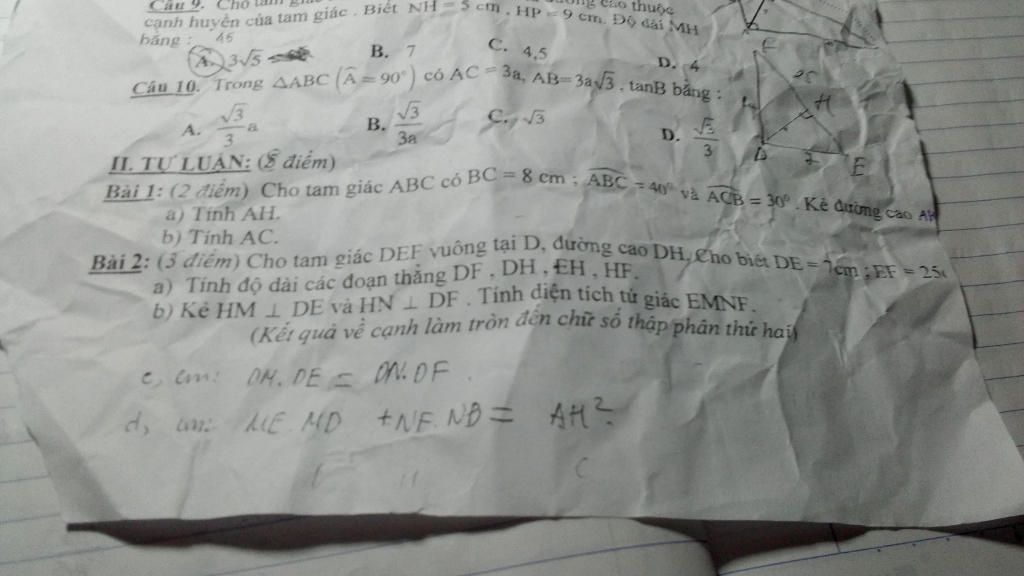 Câu 9. Cho tam
cạnh huyền của tam giác . Biết NH = 5 cm , HP = 9 cm. Độ dài MH
bằng : 45
A. 3√5 B. 7 C. 4,5 D. 4
Câu 10. Trong △ABC (Â = 90°) có AC = 3a, AB= 3a√3 . tanB bằng :
A. √3/3 a B. √3/3a C. √3 D. √3/3
II. TỰ LUẬN: (8 điểm)
Bài 1: (2 điểm) Cho tam giác ABC có BC = 8 cm ; ABC = 40° và ACB = 30° . Kẻ đường cao AH
a) Tính AH.
b) Tính AC.
Bài 2: (3 điểm) Cho tam giác DEF vuông tại D, đường cao DH, Cho biết DE = 7cm ; EF = 25c
a) Tính độ dài các đoạn thẳng DF , DH , EH , HF.
b) Kẻ HM ⊥ DE và HN ⊥ DF . Tính diện tích tứ giác EMNF.
(Kết quả về cạnh làm tròn đến chữ số thập phân thứ hai)
c, cm: DM. DE = DN. DF .
d, cm: ME. MD + NF. ND = AH².
F
25
H
D
7
E